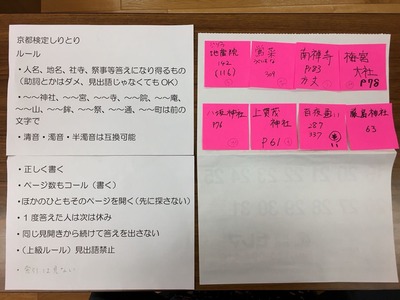 京都検定しりとり
ルール
・人名、地名、社寺、祭事等答えになり得るもの
(助詞とかはダメ、見出語じゃなくてもOK)
・~~神社、~~宮、~~寺、~~院、~~庵、
~~山、~~鉾、~~祭、~~通、~~町は前の
文字で
・清音・濁音・半濁音は互換可能
・正しく書く
・ページ数もコール(書く)
・ほかのひともそのページを開く(先に探さない)
・1度答えた人は次は休み
・同じ見開きから続けて答えを出さない
・(上級ルール)見出語禁止
地蔵院
142
(116)
南禅寺
P83
梅宮
大社
P98
八坂神社
176
上賀茂
神社
P61
287
337
厳島神社
63